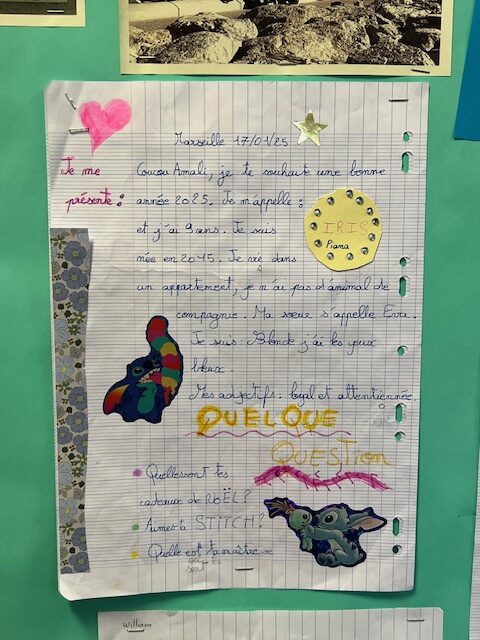 Marseille 17/01/25
Je me
présente :
Coucou Amali, je te souhaite une bonne
année 2025. Je m'appelle :
IRIS
Piana
et j'ai 9 ans. Je suis
née en 2015. Je vie dans
un appartement, je n'ai pas d'animal de
compagnie. Ma sœur s'appelle Eva.
Je suis Blonde j'ai les yeux
bleux.
Mes adjectifs : loyal et attentiennée
QUELQUE
QUESTION
Quellessont tes
cadeaux de NOËL?
Aimes tu STITCH?
Quelle est ta
sont
William